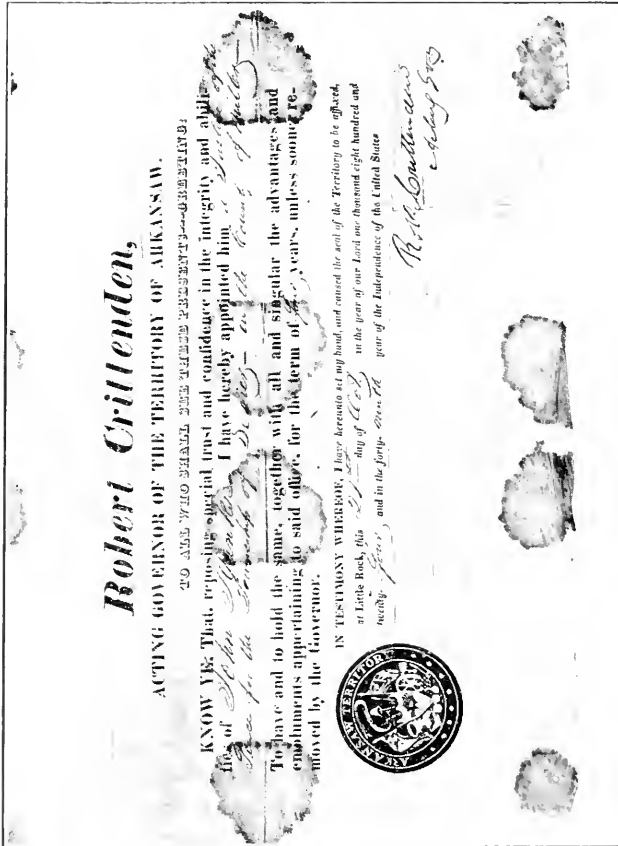 Robert Crittenden,
ACTING GOVERNOR OF THE TERRITORY OF ARKANSAW.
TO ALL WHO SHALL SEE THESE PRESENTS—GREETING:
KNOW YE, That, reposing special trust and confidence in the integrity and abili-
ties of John I have hereby appointed him a Justice of the
Peace for the Township of in the County of
To have and to hold the same, together with all and singular the advantages and
emoluments appertaining to said office, for the term of years, unless sooner re-
moved by the Governor.
IN TESTIMONY WHEREOF, I have hereunto set my hand, and caused the seal of the Territory to be affixed,
at Little Rock, this day of in the year of our Lord one thousand eight hundred and
twenty- four, and in the forty- ninth year of the Independence of the United States
Robt. Crittenden
Acting Gov
ARKANSAW TERRITORY